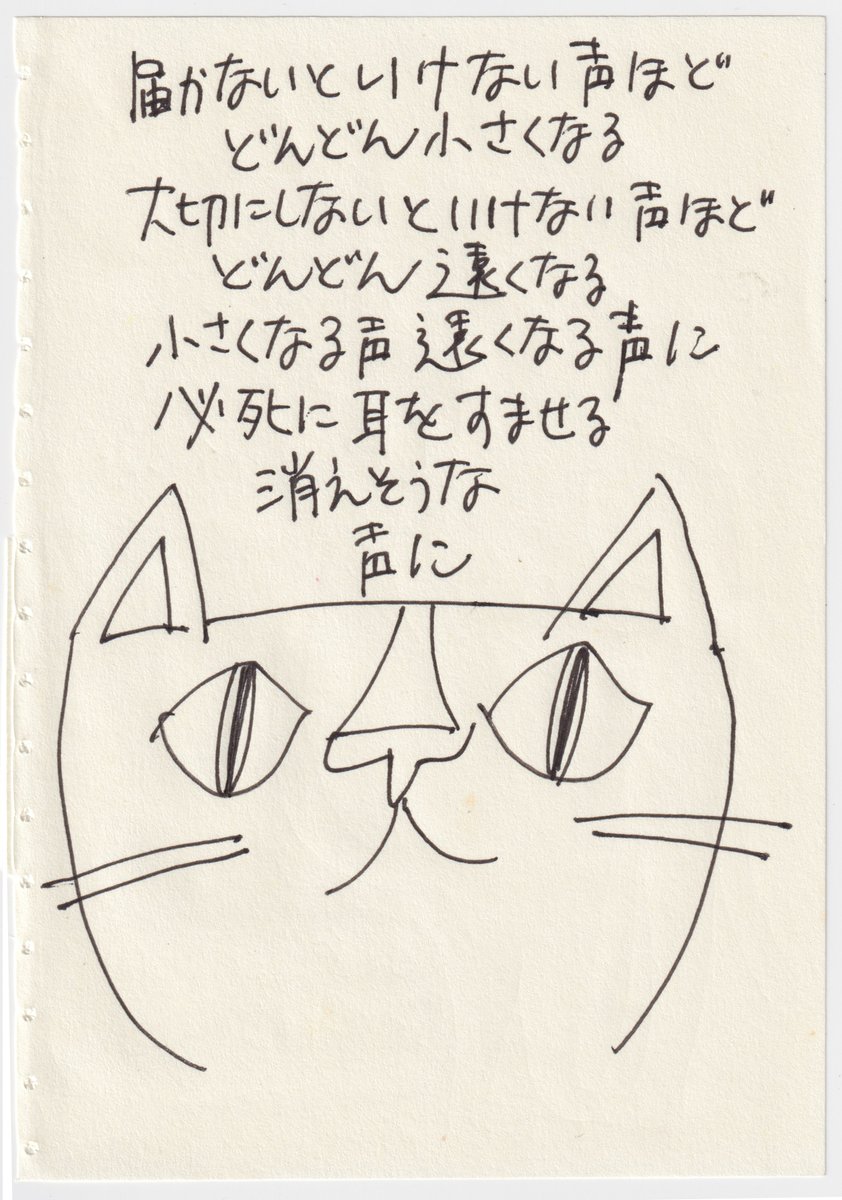 届かないといけない声ほど
どんどん小さくなる
大切にしないといけない声ほど
どんどん遠くなる
小さくなる声遠くなる声に
必死に耳をすませる
消えそうな
声に